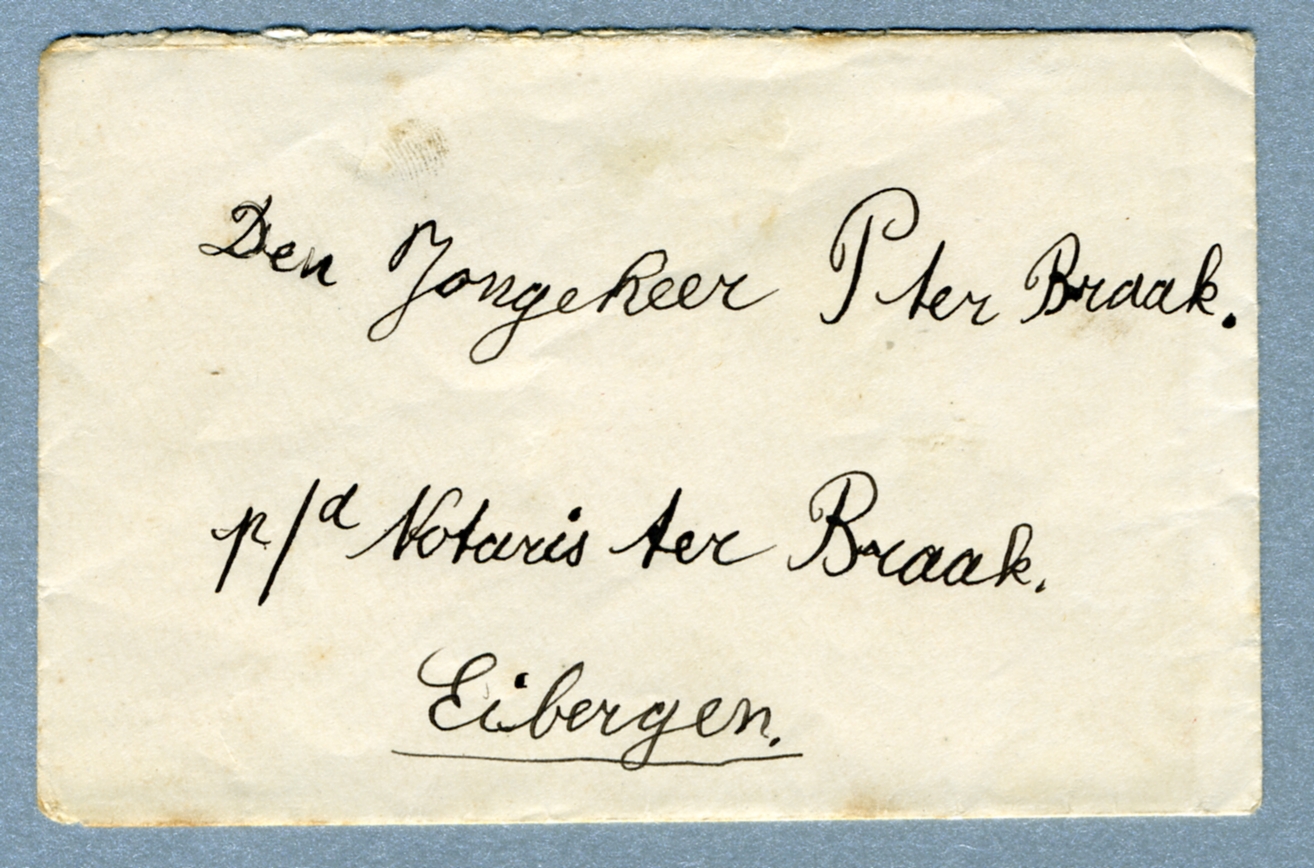 Den Jongeheer P ter Braak.
p/d Notaris ter Braak.
Eibergen.